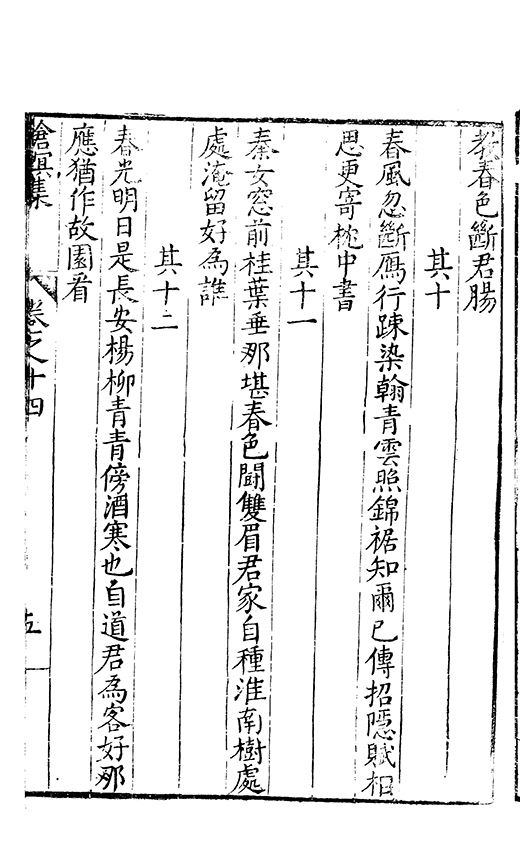 教春色斷君腸
其十
春風忽斷鴈行踈染翰青雲照錦裾知爾已傳招隱賦相
思更寄枕中書
其十一
秦女窓前桂葉垂那堪春色鬪雙眉君家自種淮南樹處
處淹留好為誰
其十二
春光明日是長安楊柳青青傍酒寒也自道君為客好那
應猶作故園看
滄溟集
卷之十四
五